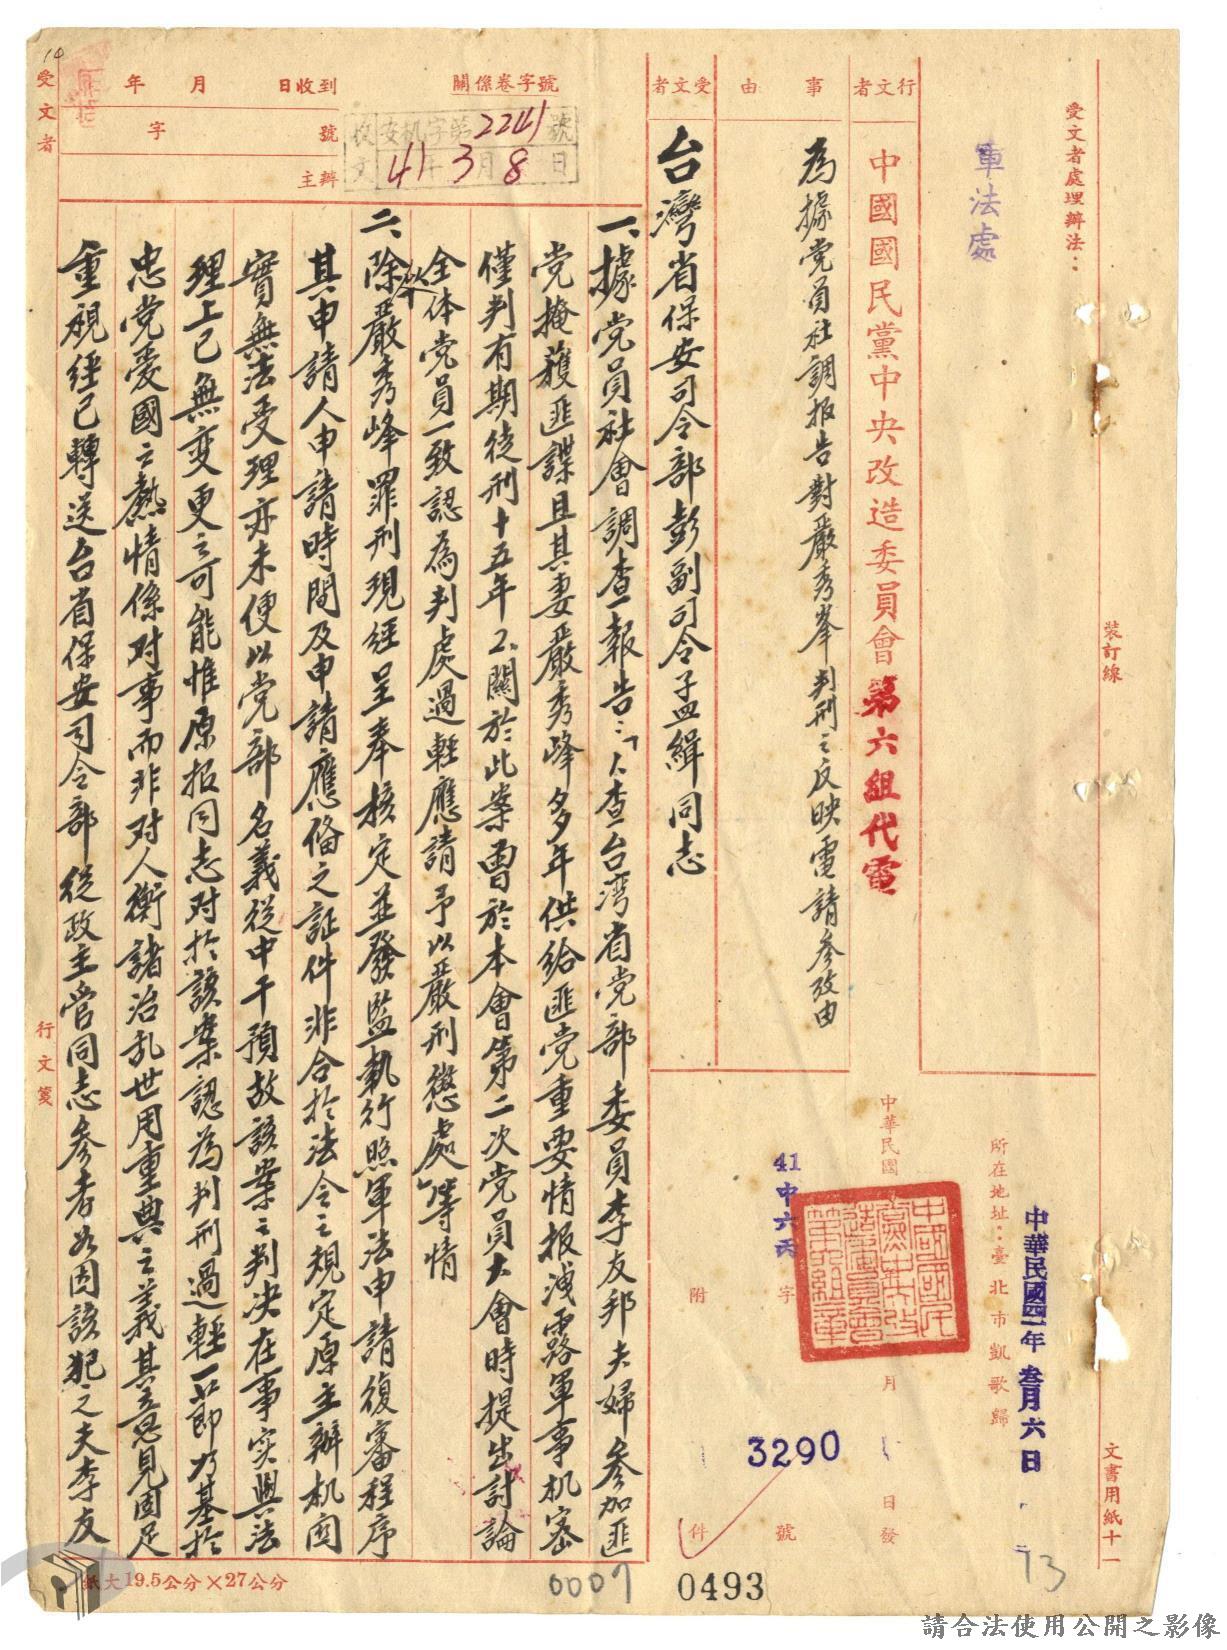 受文者處理辦法：
軍法處
裝訂線
文書用紙十一
中華民國四一年叁月六日
所在地址：臺北市凱歌歸
行文者
中國國民黨中央改造委員會第六組代電
中華民國
月
日發
事由
為據党員社調报告對嚴秀峯判刑之反映電請参攷由
41中六丙
字
3290
號
附
件
中國國民黨中央改造委員會第六組章
受文者
台灣省保安司令部彭副司令孟緝同志
關係卷字號
收文
安机字第2241號
41年3月8日
到收日
月
年
號
字
主辦
一、據党員社會調查報告：「1.查台湾省党部委員李友邦夫婦参加匪
党掩護匪諜且其妻嚴秀峰多年供給匪党重要情报洩露軍事机密
僅判有期徒刑十五年2.關於此案曾於本會第二次党員大會時提出討論
全体党員一致認為判處過輕應請予以嚴刑懲處」等情
二、除嚴秀峰罪刑現經呈奉核定並發監執行照軍法申請復審程序
其申請人申請時間及申請應俻之証件非合於法令之規定原主辦机関
實無法受理亦未便以党部名義從中干預故該案之判决在事实與法
理上已無变更之可能惟原报同志对於該案認為判刑過輕一節乃基於
忠党爱國之热情係对事而非对人衡諸治乱世用重典之義其意見固足
重視經已轉送台省保安司令部從政主管同志参考及因該犯之夫李友
受文者
行文箋
紙大19.5公分×27公分
0007
0493
73
10
請合法使用公開之影像